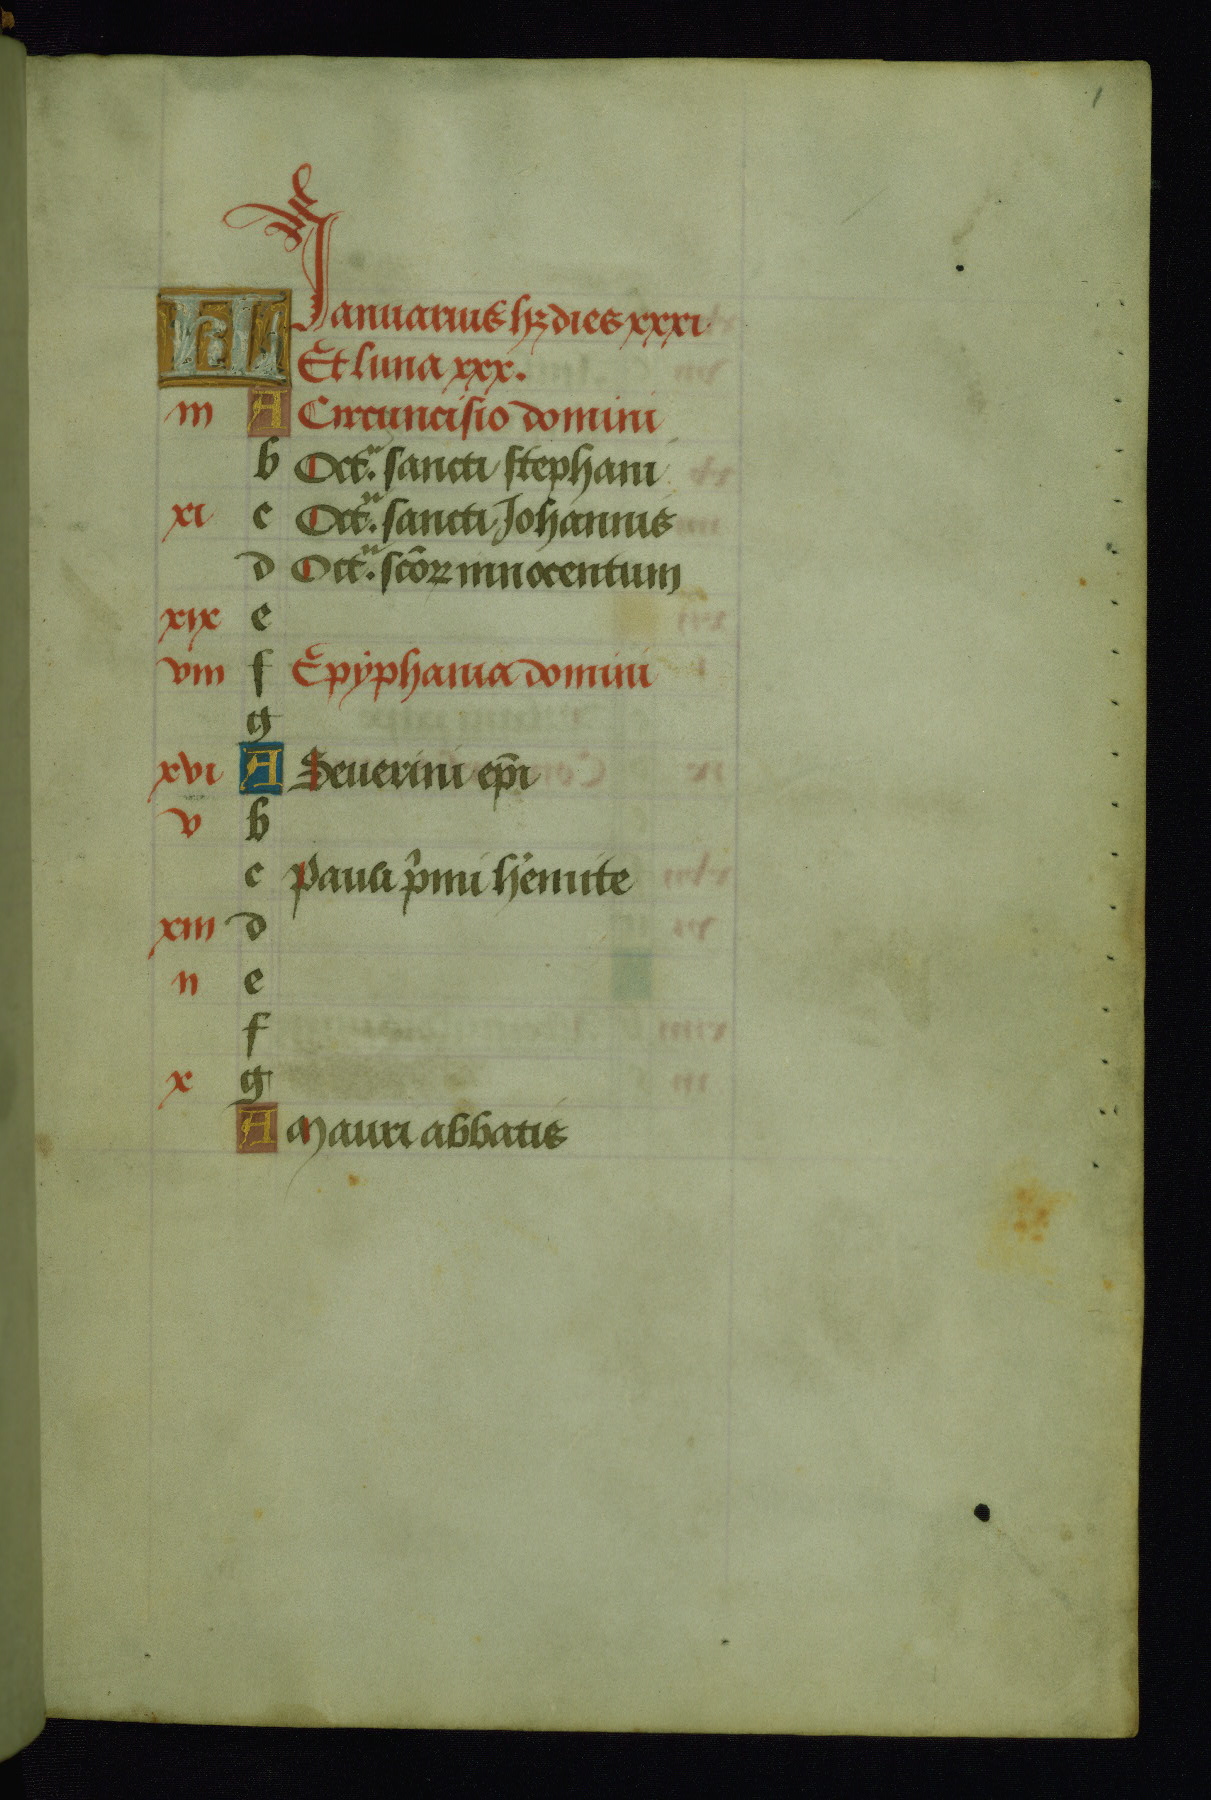 1
KL Januarius hꝫ dies xxxi.
Et luna xxx.
iii A Circuncisio domini
b Octͣ. sancti stephani
xi c Octͣ. sancti Johannis
d Octͣ. sc̄oꝝ innocentum
xix e
viii f Epÿphania domini
g
xvi A Seuerini ep̄i
v b
c Pauli p̄mi he̓mite
xiii d
ii e
f
x g
A Mauri abbatis